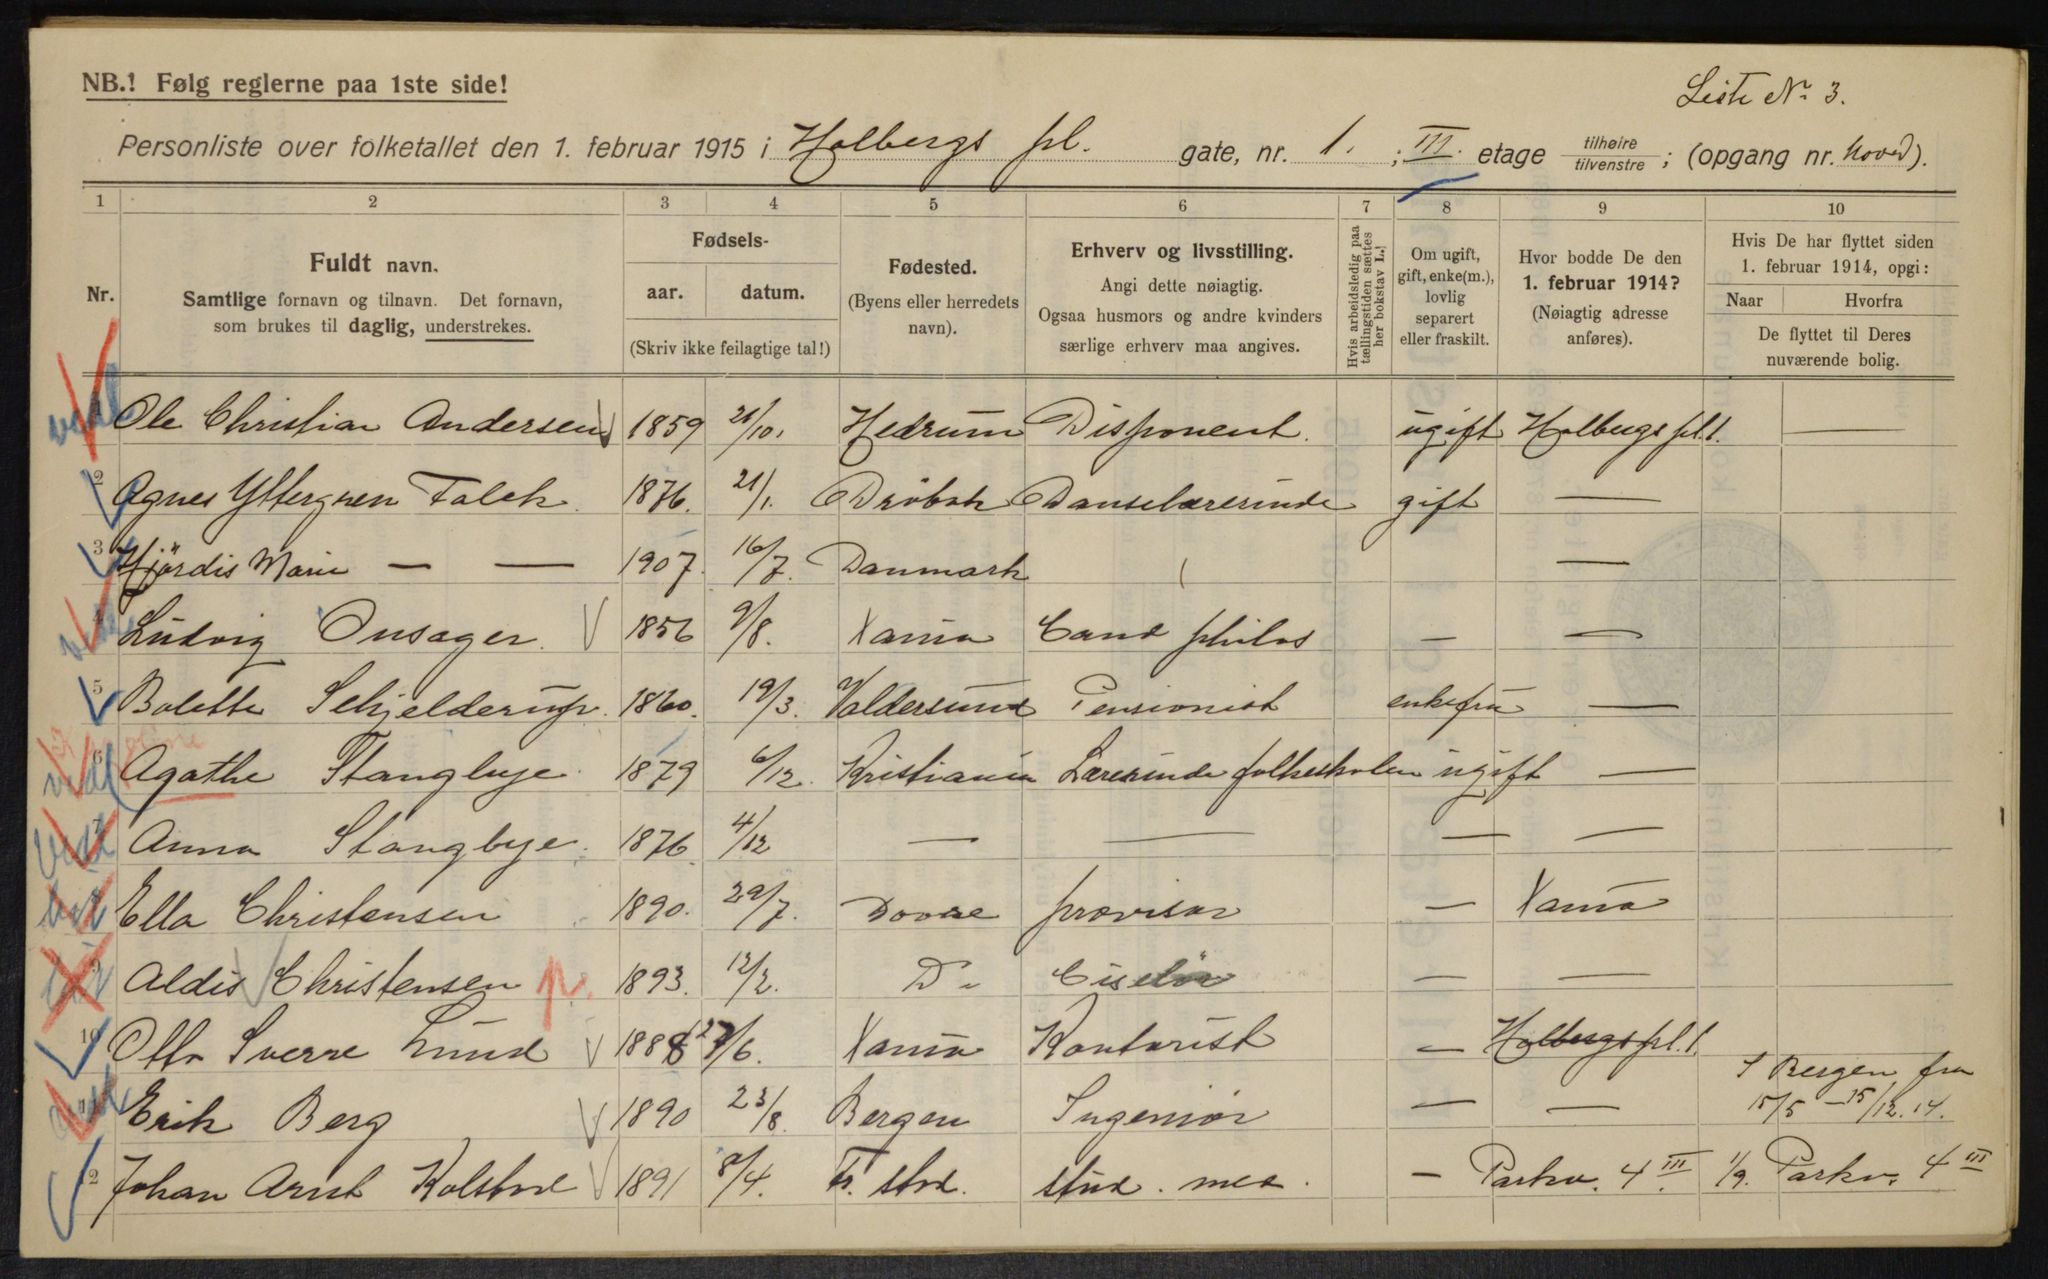 Liste No. 3.
NB.! Følg reglerne paa 1ste side!
Personliste over folketallet den 1. februar 1915 i Holbergs pl. gate, nr. 1. ; III. etage tilhøire tilvenstre ; (opgang nr. hoved).
1 2 3 4 5 6 7 8 9 10
Nr.
Fuldt navn.
Samtlige fornavn og tilnavn. Det fornavn,
som brukes til daglig, understrekes.
Fødsels-
aar. datum.
(Skriv ikke feilagtige tal!)
Fødested.
(Byens eller herredets
navn).
Erhverv og livsstilling.
Angi dette nøiagtig.
Ogsaa husmors og andre kvinders
særlige erhverv maa angives.
Hvis arbeidsledig paa
tællingstiden sættes
her bokstav L.
Om ugift,
gift, enke(m.),
lovlig
separert
eller fraskilt.
Hvor bodde De den
1. februar 1914?
(Nøiagtig adresse
anføres).
Hvis De har flyttet siden
1. februar 1914, opgi:
Naar Hvorfra
De flyttet til Deres
nuværende bolig.
1 Ole Christian Andersen 1859 21/10. Hedrum Disponent. ugift Holbergs pl. 1. —
2 Agnes Yttergren Falck. 1876. 21/1. Dröbak Danselærerinde gift —
3 Hjördis Marie — — 1907. 16/7. Danmark —
4 Ludvig Onsager. 1856 9/8. Xania Cand philos — —
5 Bolette Schjelderup. 1860. 19/3. Valdersund Pensionist enkefru —
6 Agathe Stangbye. 1879 6/12. Kristiania Lærerinde folkeskolen ugift —
7 Anna Stangbye. 1876. 4/12 — — — —
8 Ella Christensen 1890. 29/7. Dovre provisor — Xania
9 Aldis Christensen p. 1893. 12/2. Do Ciselør — —
10 Otto Sverre Lund 1888 27/6. Xania Kontorist — Holbergs pl. 1.
11 Erik Berg 1890 23/8. Bergen Ingeniör — — I Bergen fra
15/5 – 15/12. 14.
12 Johan Arnt Kolstad 1891 8/4. Fr. stad. stud. med. — Parkv. 4 III. 1/9. Parkv. 4 III